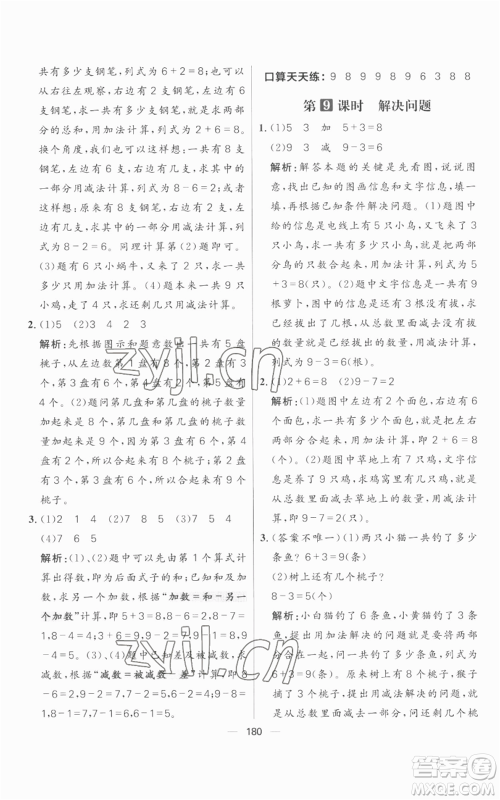 共有多少支钢笔,列式为6+2=8;也可以
从右往左观察,右边有2支钢笔,左边有6支
钢笔,求一共有多少支钢笔,就是求两部分
的总和,用加法计算,列式为2+6=8。
换个角度,我们也可以这样想:一共有8支
钢笔,左边有6支钢笔,右边有几支,求其中
的一部分用减法计算,列式为8-6=2;或
者这样想:原来有8支钢笔,右边有2支钢
笔,左边有几支,求其中的一部分用减法计
算,列式为8-2=6。同理计算第(2)题。
(3)题有6只小蜗牛,又来了3只,求一共
有多少只用加法计算。(4)题原来有9只
小鸡,走了4只,求还剩几只用减法计算。
2. (1)5 (2)3 4 2 3
解析:先根据图示和题意数一数每盘有几
个桃子,从左边数第1盘有8个,第2盘有
6个,第3盘有2个,第4盘有3个,第5盘
有7个。(2)题问第几盘和第几盘的桃子
数量合起来是9个,第3盘有2个,第5盘
有7个,所以合起来有9个桃子;第2盘有
6个,第4盘有3个,所以合起来有9个
桃子。
3. (1)2 1 4 (2)7 8 5 (3)5 2 4
(4)7 8 5
解析:(1)、(2)题中可根据第1个算式计
算出得数,即为其余的和,已知和及加
数,求另一个加数,根据“加数=和-另一
个加数”计算,即5+3=8,8-6=2,8-7=
1,8-4=4;1+8=9,9-2=7,9-1=8,
9-4=5。(3)、(4)题中已知差及被减数,求
减数,根据“减数=被减数-差”计算,即8-
6=2,7-2=5,4-2=2,6-2=4;9-8=
1,8-1=7,9-1=8,6-1=5。
口算天天练:9 8 9 9 8 9 6 3 8 8
第9课时 解决问题
1. (1)5 3 加 5+3=8
解析:解答本题的关键是先看图,说图意,
找出已知的图画信息和文字信息,并根据
所有已知条件解决问题。(1)题图中
给的信息是电线上有5只小鸟,又飞来了3
只小鸟,求一共有多少只小鸟,就是把两次
的只数合起来,用加法计算,即5+3=
8(只)。(2)题图中文字信息是一共有9
根萝卜,图中的信息是吃了3根,求
还剩几根,从总根数里去掉吃了的数量,用
减法计算,即9-3=6(根)。
2. (1)2+6=8 (2)9-7=2
解析:(1)题图中左边有2个面包,右边有
6个面包,求一共有多少个面包,就是把这
两部分合起来,用加法计算,即2+6=8
(个)。(2)题图中草地上有7只鸡,文字信
息是养了9只鸡,求鸡舍里有几只,从总数
里去掉草地上的数量,用减法计算,
即9-7=2(只)。
3. (答案不唯一)(1)两只小猫一共钓了多少
条鱼?6+3=9(条)
(2)树上还有几个桃子?
8-3=5(个)
解析:小白猫钓了6条鱼,小黄猫钓了3条
鱼,用加法解决的问题就是把两部分合起
来,一共钓了多少条鱼,用加法计算,即
6+3=9(条)。
180
zyjl.cn
zyjl.cn